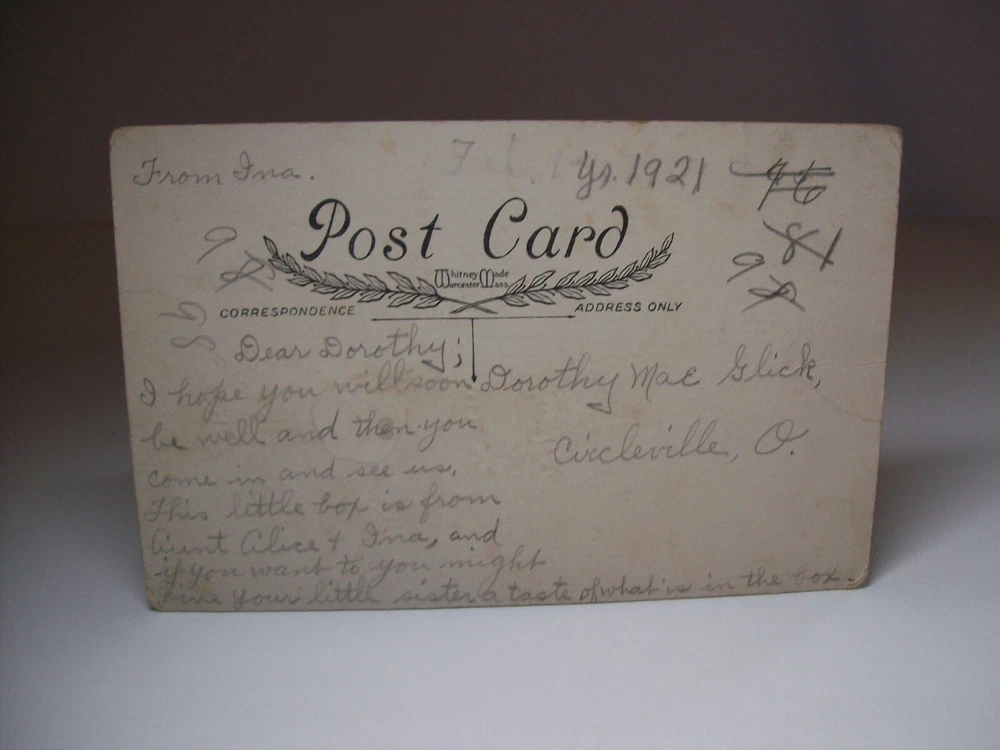 From Ina.
Yr. 1921
96
84
98
98
98
Post Card
Whitney Made
Worcester Mass.
CORRESPONDENCE
ADDRESS ONLY
Dear Dorothy;
I hope you will soon
be well and then you
come in and see us.
This little box is from
Aunt Alice & Ina, and
if you want to you might
give your little sister a taste of what is in the box.
Dorothy Mae Glick,
Circleville, O.